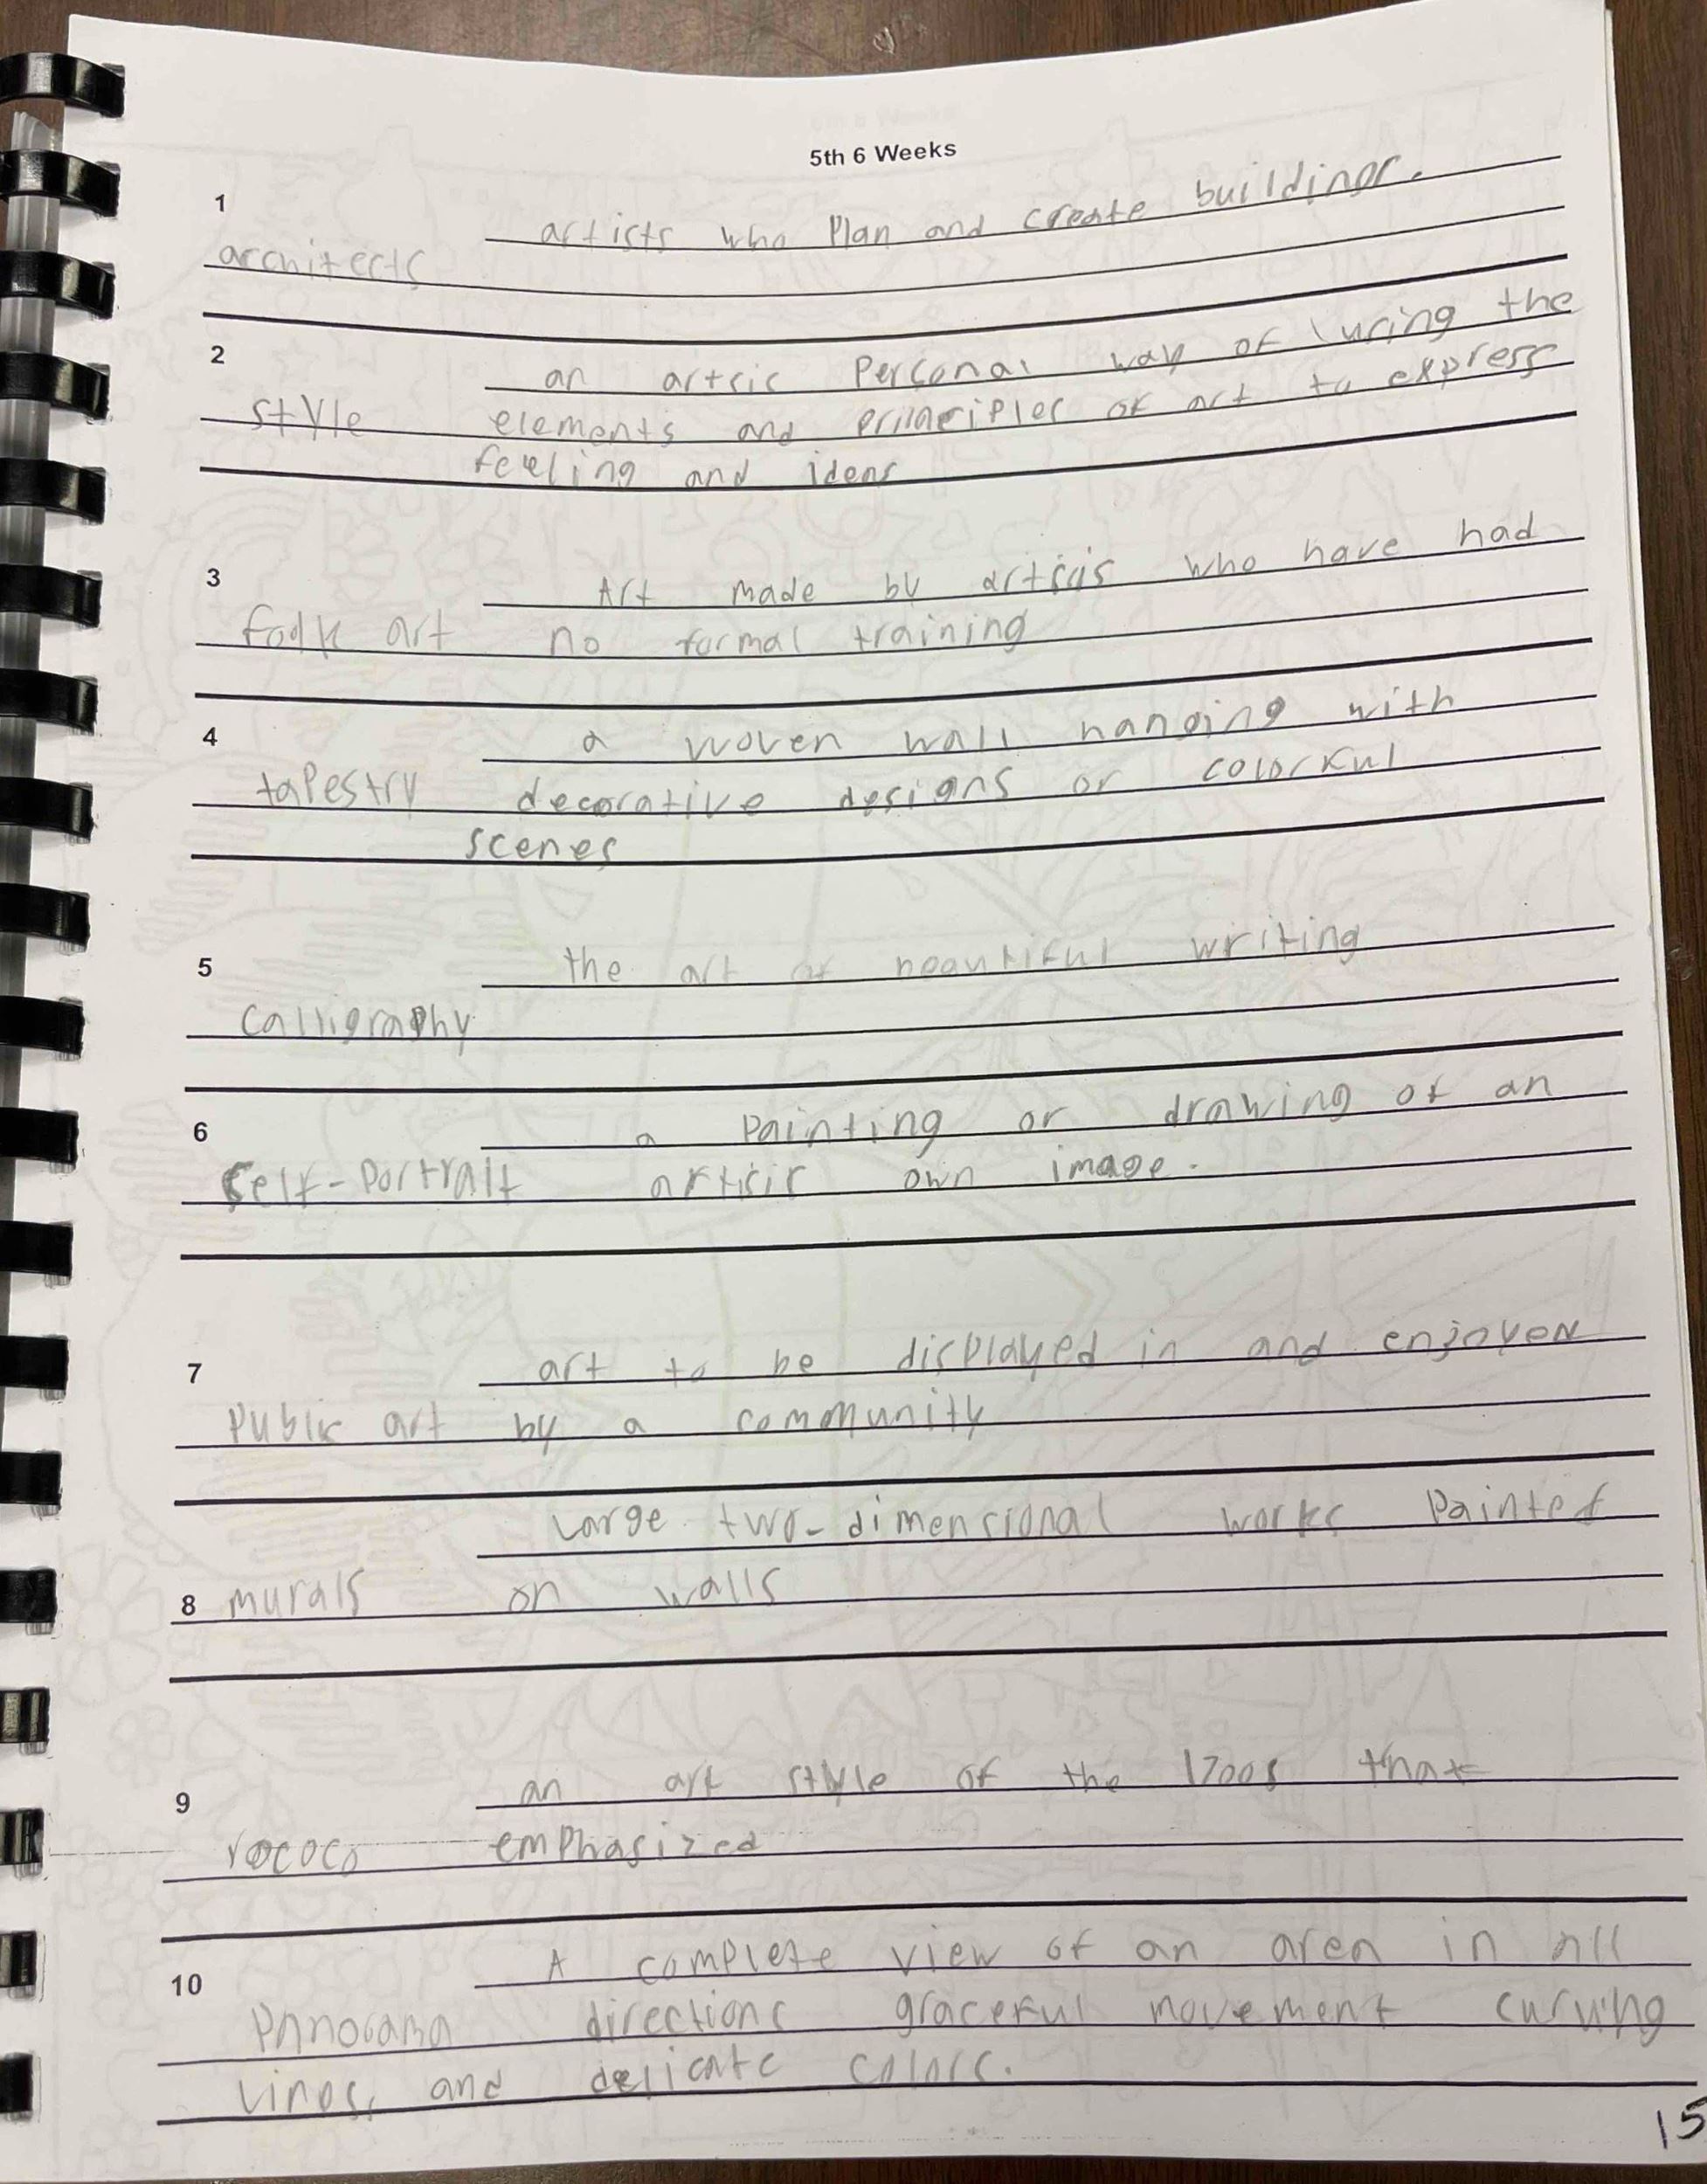 5th 6 Weeks
1 artists who Plan and create buildings.
architects
2 an artsic Personal way of using the
style elements and principles of art to express
feeling and ideas
3 Art made by artists who have had
folk art no formal training
4 a woven wall hanging with
tapestry decorative designs or colorful
scenes
5 the art of beautiful writing
Calligraphy
6 a painting or drawing of an
self-portrait own image.
7 art to be displayed in and enjoyed
Public art by a community
Large two-dimensional works Painted
8 murals on walls
9 an art style of the 1700s that
rococo emphasized
10 A complete view of an area in all
Panorama directions graceful movement curving
lines, and delicate colors.
15